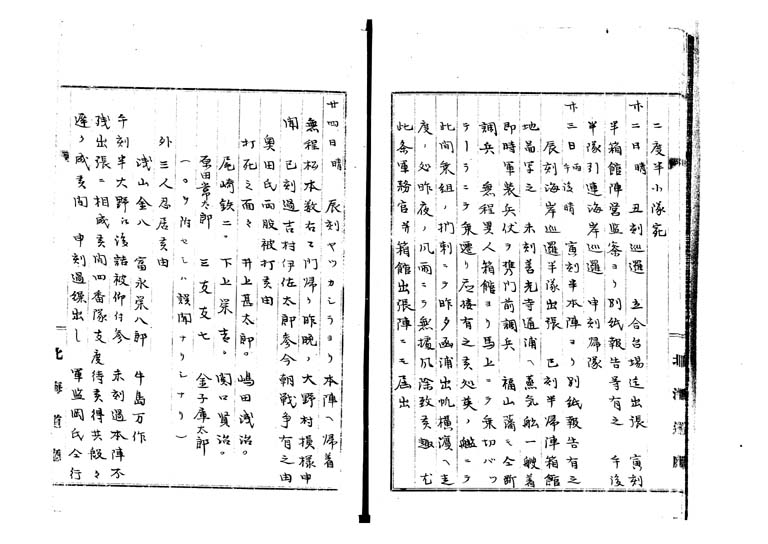 二度半小隊宛
廿二日晴 丑刻巡邏 立合台場迄出張 寅刻
半箱館陣営監察ヨリ別紙報告等有之 午後
半隊引連海岸巡邏 申刻帰隊
廿三日午後晴 寅刻半本陣ヨリ別紙報告有之
辰刻海岸巡邏半隊出張 巳刻半帰陣箱館
地蔵町之 未刻善光寺通浦へ蒸気船一艘着
即時軍装兵伏ヲ携門前調兵 福山藩ニ全断
調兵 無程異人箱館ヨリ馬上ニテ乗切バッ
テーラニテ乗遷リ 応接有之候処英ノ船ニテ
此間乗組ノ 剌ニテ昨夕函浦出帆横濱へ走
度ノ処昨夜ノ風雨ニテ無拠風除致候趣 尤
此条軍務官幷箱館出張陣ニモ届出
廿四日晴 辰刻ヤツカシラヨリ本陣へ帰着
無程松本数右エ門帰リ昨晩ノ大野村模様申
聞 巳刻過吉村伊佐太郎参今朝戦争有之由
奥田氏両股被打候由
打死之面々 井上甚太郎。嶋田浅治。
尾崎鉄二。下上栄吉。関口賢治。
原田常太郎 三支支七 金子庫太郎
(一〇ヲ附セシハ誤聞ナリシナリ)
外三人忍居候由
浅山金八 富永栄八郎 牛馬万作
午刻半大野江後詰被仰付参 未刻過本陣不
残出張ニ相成候間四番隊支度待候得共段々
遅ノ成候間 申刻過操出し 軍監岡氏仝行
北海道廳
北海道廳